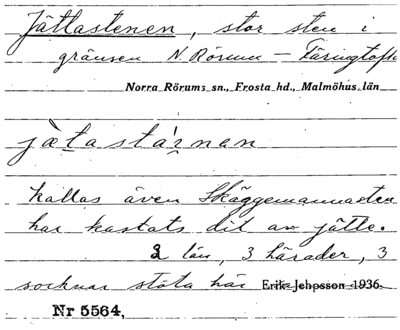 Jättastenen, stor sten i
gränsen N. Rörum – Färingtofta
Norra Rörums sn., Frosta hd., Malmöhus län
jætastáɪnan
kallas även Skäggemannasten
har kastats dit av jätte.
2 län, 3 härader, 3
socknar stöta här Erik Jehpsson 1936
Nr 5564,